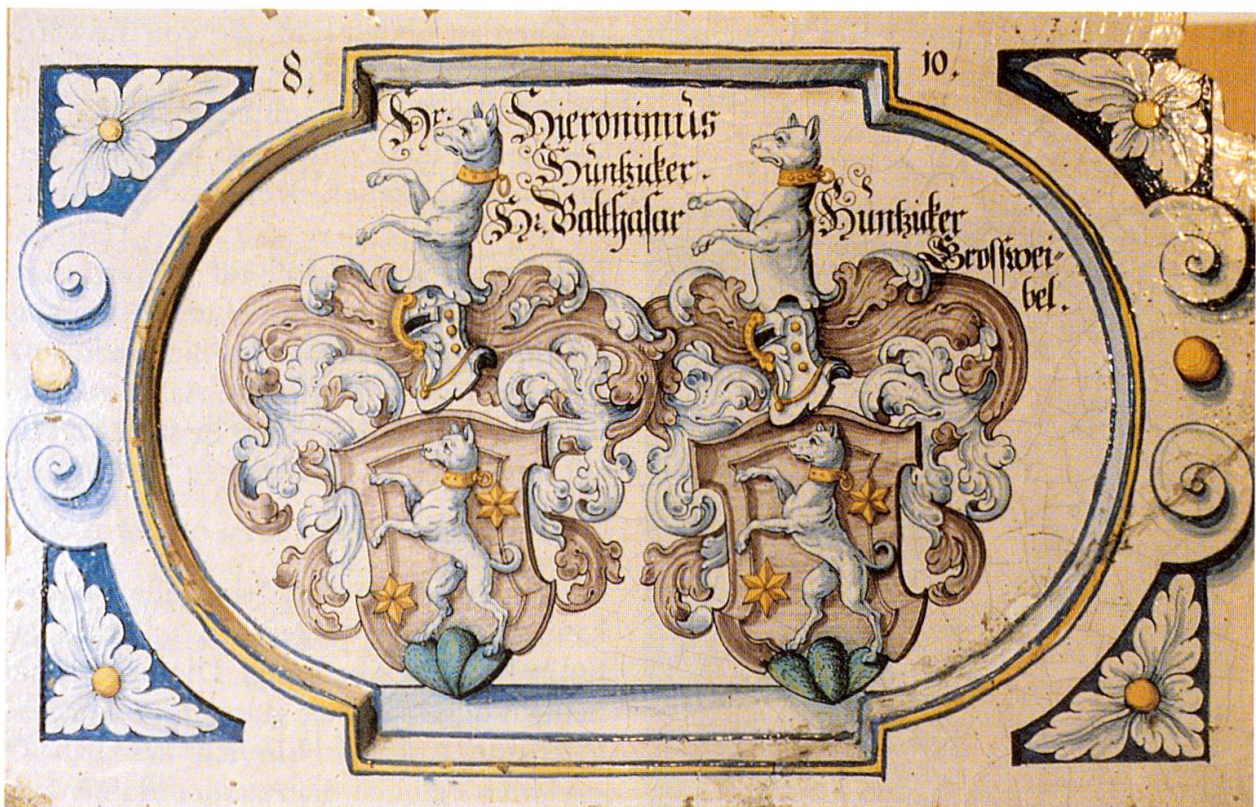 8.
10.
Hr. Hieronimus
Hüntzicker.
Hr. Balthasar Hüntzicker
Grosswei=
bel.